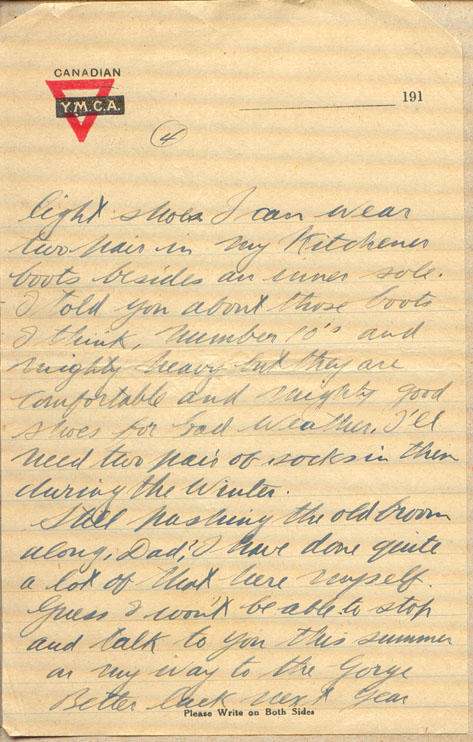 CANADIAN
Y.M.C.A.
191
4
light shoes I can wear
two pair in my Kitchener
boots besides an inner sole.
I told you about those boots
I think, number 10's and
mighty heavy but they are
comfortable and mighty good
shoes for bad weather. I'll
need two pair of socks in them
during the Winter.
Still pushing the old broom
along, Dad? I have done quite
a lot of that here myself.
Guess I won't be able to stop
and talk to you this summer
on my way to the Gorge
Better luck next year
Please Write on Both Sides